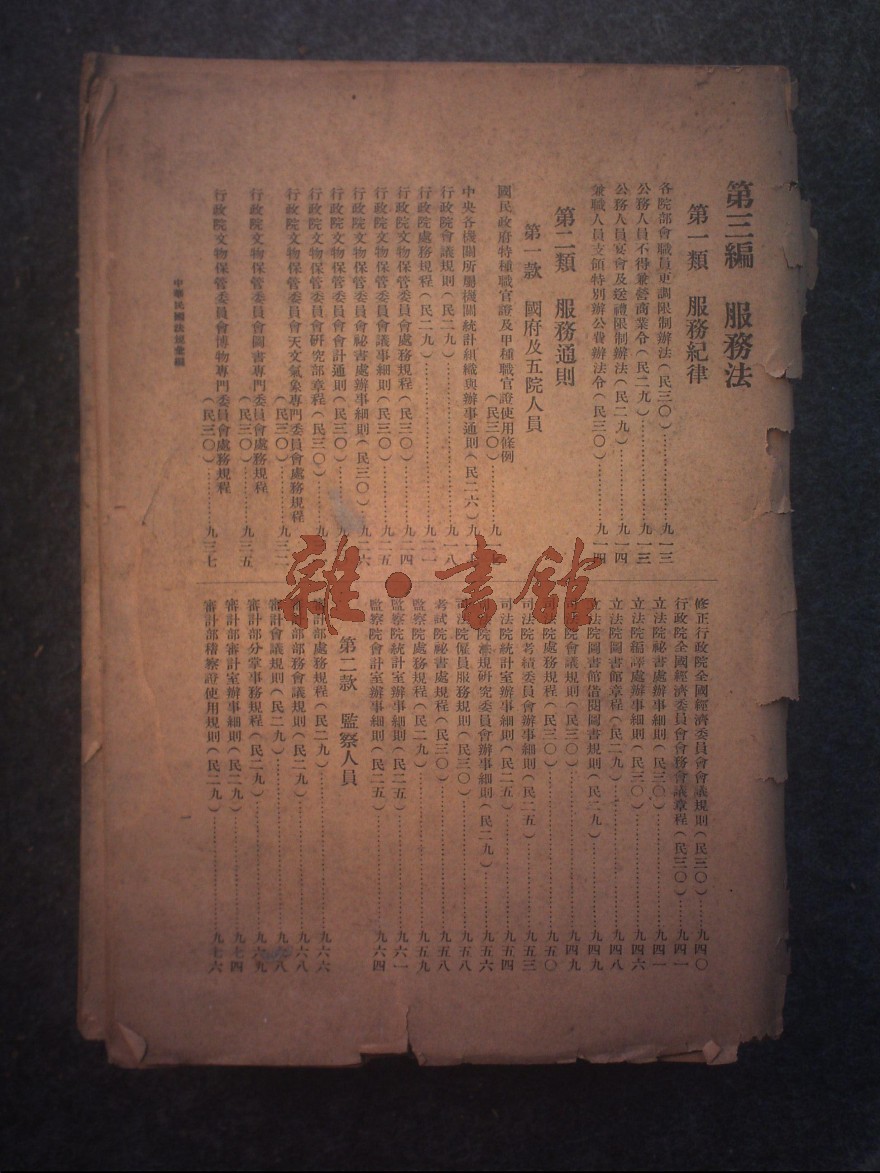 第三編　服務法
第一類　服務紀律
各院部會職員更調限制辦法(民三〇)……九一三
公務人員不得兼營商業令(民二九)……九一三
公務人員宴會及送禮限制辦法(民二九)……九一四
兼職人員支領特別辦公費辦法令(民三〇)……九一四
第二類　服務通則
第一款　國府及五院人員
國民政府特種職官證及甲種職官證使用條例
(民三〇)……九一
中央各機關所屬機關統計組織與辦事通則(民二六)九一
行政院會議規則(民二九)……九一八
行政院處務規程(民二九)……九二一
行政院文物保管委員會處務規程(民三〇)……九二四
行政院文物保管委員會議事細則(民三〇)……九二五
行政院文物保管委員會祕書處辦事細則(民三〇)九二六
行政院文物保管委員會會計通則(民三〇)……九
行政院文物保管委員會研究部章程(民三〇)……九
行政院文物保管委員會天文氣象專門委員會處務規程
(民三〇)……九三二
行政院文物保管委員會圖書專門委員會處務規程
(民三〇)……九三五
行政院文物保管委員會博物專門委員會處務規程
(民三〇)……九三七
中華民國法規彙編
修正行政院全國經濟委員會會議規則(民三〇)……九四〇
行政院全國經濟委員會會務會議章程(民三〇)……九四一
立法院祕書處辦事細則(民三〇)……九四一
立法院編譯處辦事細則(民三〇)……九四六
立法院圖書館章程(民二九)……九四八
立法院圖書館借閱圖書規則(民二九)……九四九
司法院會議規則(民三〇)……九四九
司法院處務規程(民三〇)……九五〇
司法院考績委員會辦事細則(民二五)……九五三
司法院統計室辦事細則(民二五)……九五四
司法院法規研究委員會辦事細則(民二九)……九五六
司法院僱員服務規則(民三〇)……九五八
考試院祕書處規程(民三〇)……九五八
監察院處務規程(民二九)……九五九
監察院統計室辦事細則(民二五)……九六一
監察院會計室辦事細則(民二五)……九六四
第二款　監察人員
審計部處務規程(民二九)……九六六
審計部部務會議規則(民二九)……九六八
審計會議規則(民二九)……九六八
審計部分掌事務規程(民二九)……九六九
審計部審計室辦事細則(民二九)……九七四
審計部稽察證使用規則(民二九)……九七六
雜·書館